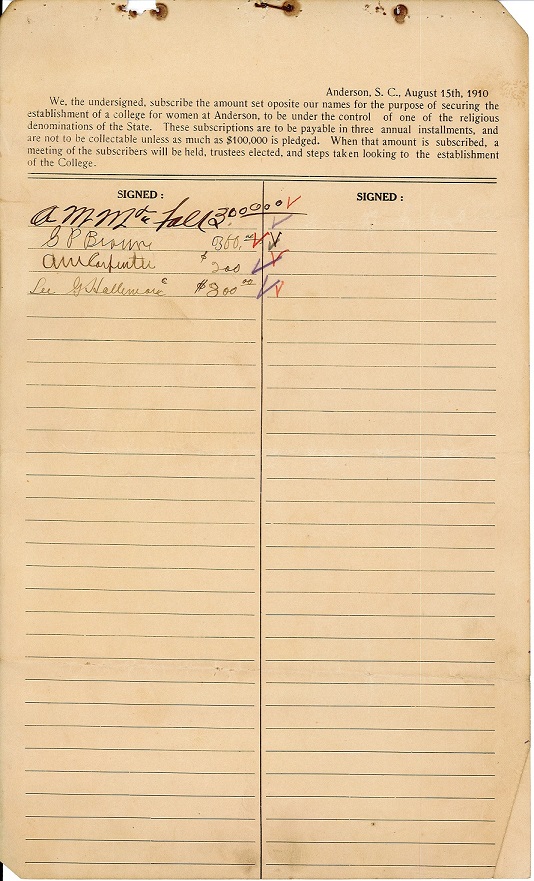 Anderson, S. C., August 15th, 1910
We, the undersigned, subscribe the amount set oposite our names for the purpose of securing the
establishment of a college for women at Anderson, to be under the control of one of the religious
denominations of the State. These subscriptions are to be payable in three annual installments, and
are not to be collectable unless as much as $100,000 is pledged. When that amount is subscribed, a
meeting of the subscribers will be held, trustees elected, and steps taken looking to the establishment
of the College.
SIGNED :
SIGNED :
A M McFall
G P Brown 300.00
AM Carpenter $ 200
Lee G Holleman $300 00